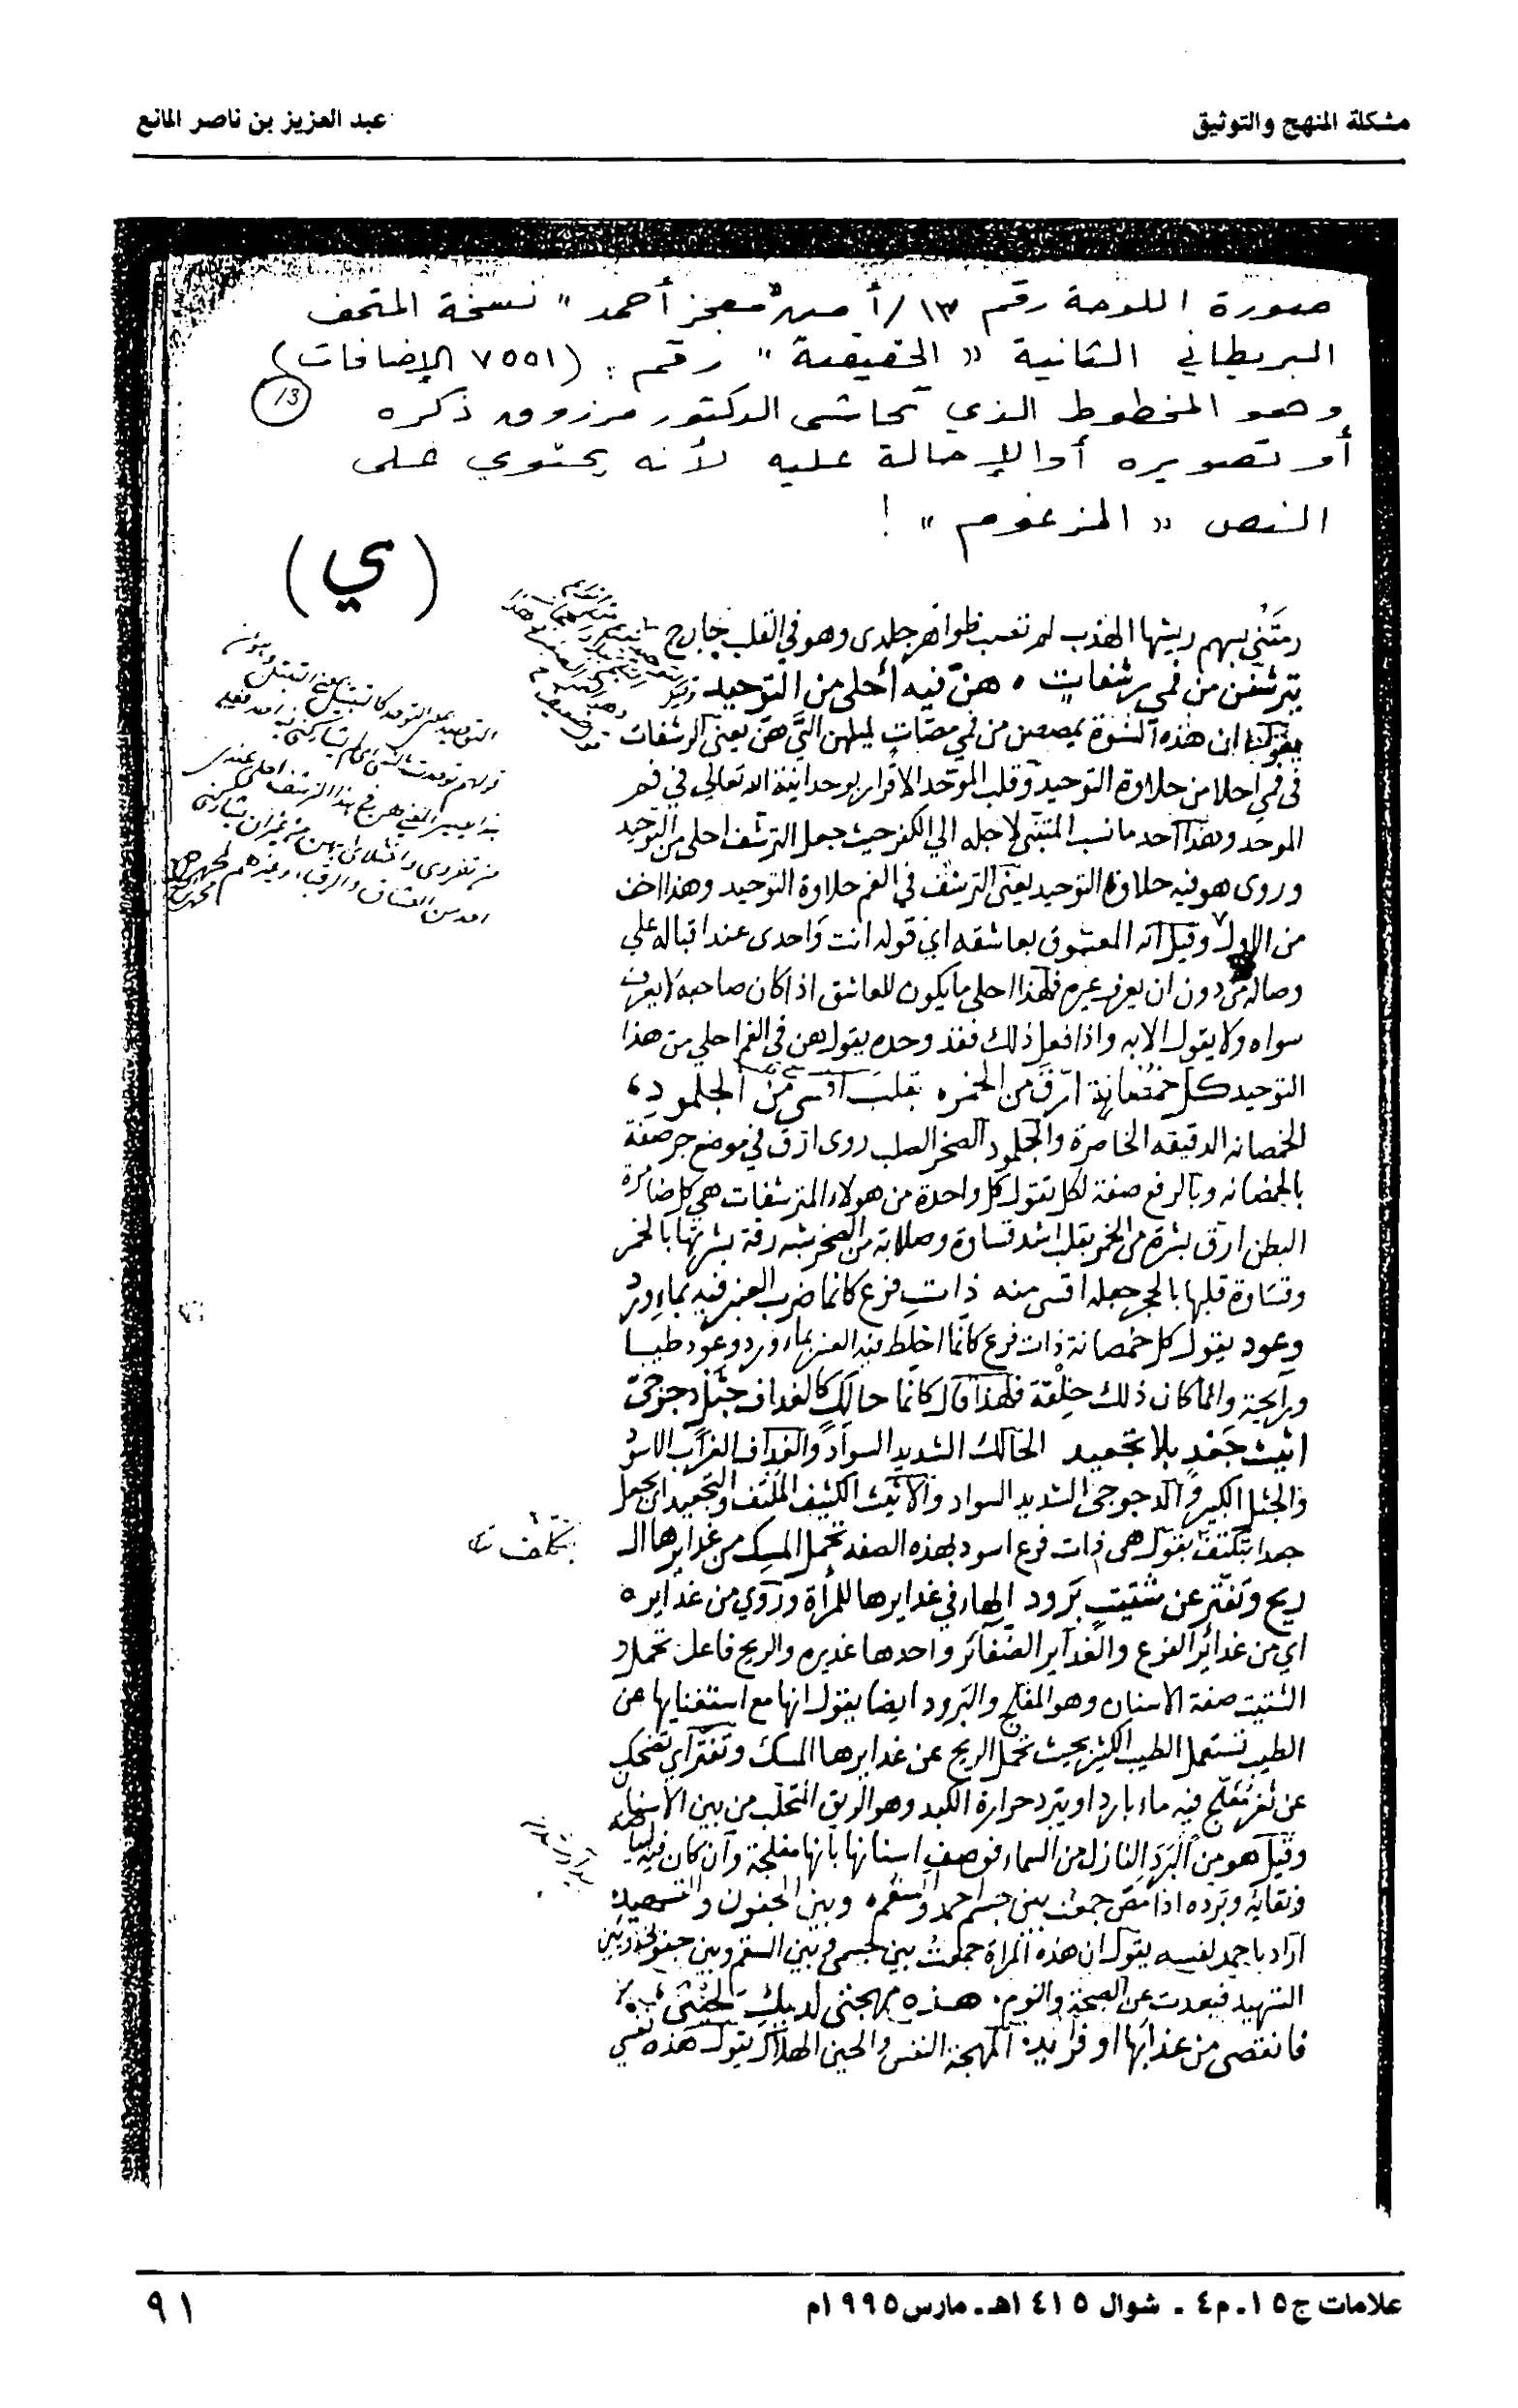 مشكلة المنهج والتوثيق
عبد العزيز بن ناصر المانع
صورة اللوحة رقم ١٣/أ من «معجز أحمد» نسخة المتحف
البريطاني الثانية «الحقيقية» رقم: (٧٥٥١ الإضافات)
وهو المخطوط الذي تحاشى الدكتور مرزوق ذكره
13
أو تصويره أو الإحالة عليه لأنه يحتوي على
النص «المزعوم»!
(ي)
رمتني بسهم ريشها الهدب لم تصب ظواهر جلدي وهو في القلب جارح
يترشفن من فمي رشفات ه هن فيه أحلى من التوحيد
يقول ان هذه النسوة يمصصن من فمي مصات لميلهن الي هن يعني الرشفات
في فمي احلا من حلاوة التوحيد وقلب الموحد الاقرار بوحدانية الله تعالي في فم
الموحد وهذا احد ما نسب المتنبي لاجله الي الكفر حيث جعل الترشف احلى من التوحيد
وروى هو فيه حلاوة التوحيد يعني الترشف في الفم حلاوة التوحيد وهذا اخف
من الاول وقيل انه المعشوق بعاشقه اي قوله انت واحدي عند اقباله علي
وصاله من دون ان يعرف غيره فلهذا احلى ما يكون للعاشق اذا كان صاحبه لا يعرف
سواه ولا يقول الا به واذا فعل ذلك فقد وحده يقول هن في الفم احلي من هذا
التوحيد كل خمصانة ارق من الخمره بقلب اقسى من الجلمود
الخمصانه الدقيقه الخاصرة والجلمود الصخر الصلب روى ارق في موضع جر صفة
بالخمصانه وبالرفع صفة لكل تقول كل واحدة من هولاء المترشفات هي كل ضامرة
البطن ارق بشرة من الخمر بقلب اشد قساوة وصلابة من الصخر شبه رقة بشرتها بالخمر
وقساوة قلبها بالحجر جعله اقسى منه ذات فرع كانما ضرب العنبر فيه بماء ورد
وعود يقول كل خمصانة ذات فرع كانما اخلط فيه العنبر بماء ورد وعود طيبا
ورايحة وانما كان ذلك خلقة فلهذا قال كانما حالك كالغداف جثل دجوجى
اثيث جعد بلا تجعيد الحالك الشديد السواد والغداف الغراب الاسود
والجثل الكبير والدجوجى الشديد السواد والاثيث الكثيف الملتف والتجعيد ان يجعل
جعدا بتكلف يقول هى ذات فرع اسود بهذه الصفه تحمل المسك من غدايرها الـ
بتكلف
ريح وتفتر عن شتيت برود الهاء في غدايرها للمرأة وروي من غدايره
اي من غدائر الفرع والغداير الضفائر واحدها غديره والريح فاعل تحمل و
الشتيت صفة الاسنان وهو المفلج والبرود ايضا يقول انها مع استغنايها عن
الطيب تستعمل الطيب الكثير بحيث تحمل الريح عن غدايرها المسك وتفتر اي تضحك
عن ثغر مفلج فيه ماء بارد او يبرد حرارة الكبد وهو الريق المتحلب من بين الاسنان
وقيل هو من البرد النازل من السماء فوصف اسنانها بانها مفلجة وان كان فيه لبياضه
ونقايه وبرده اذا مص جمعت بين جسم احمد والسقم ه وبين الجفون والتسهيد
اراد باحمد نفسه يقول ان هذه المراة جمعت بين جسمي وبين السقم وبين جفوني وبين
التسهيد فبعدت عن الصحة والنوم. هذه مهجتي لديك لحيني
فانقصى من عذابها او فزايد. المهجة النفس والحين الهلاك يقول هذه نفسي
علامات ج١٥ـ م٤ ـ شوال ١٤١٥هـ ـ مارس ١٩٩٥م
٩١